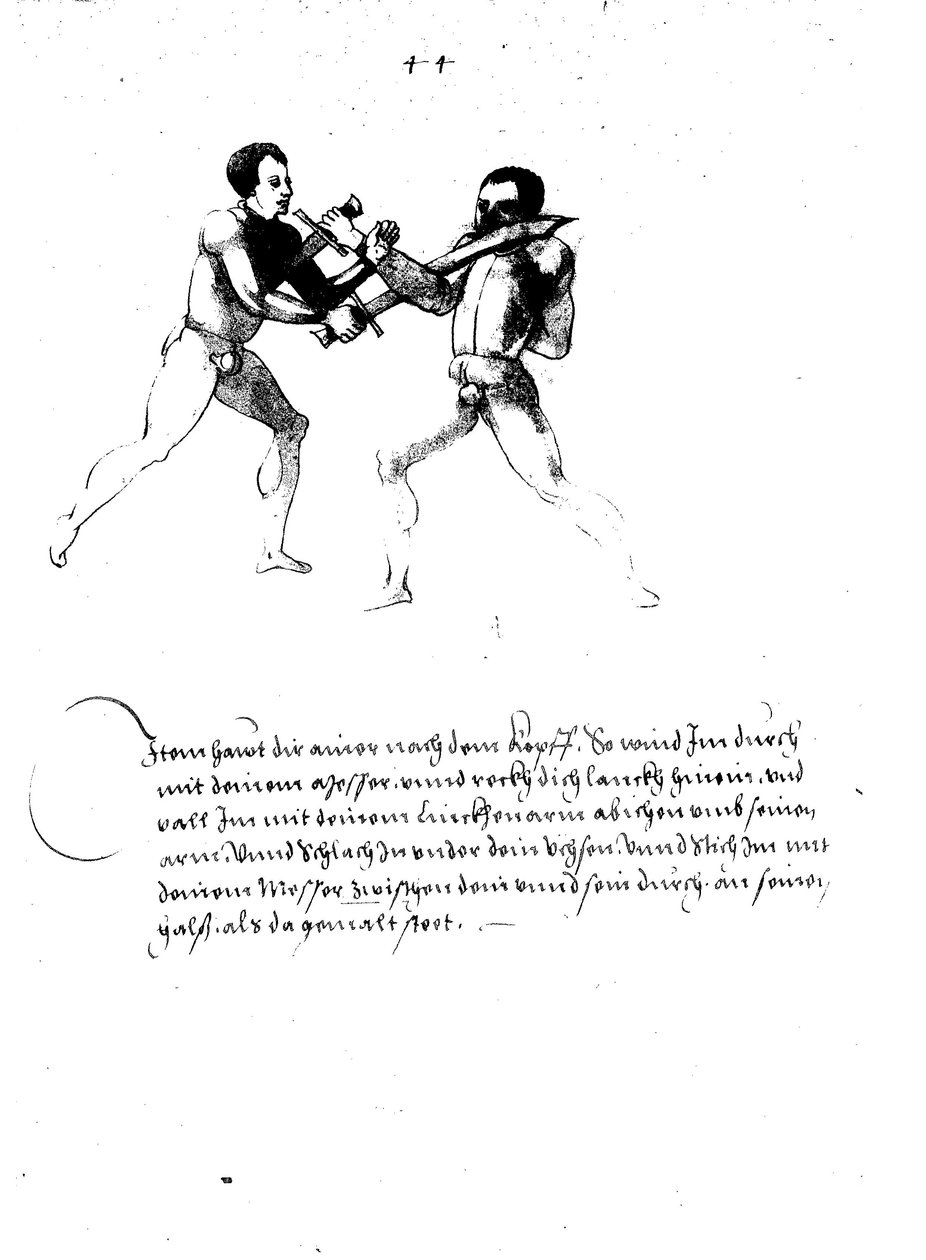 44
Item hawt dir ainer nach dem kopff. So wind Im durch
mit deinem Messer. vnnd reckh dich lanckh hinein. vnd
vall Im mit deinem Linckhen arm abichen vmb seinen
arm. Vnnd Schlach In vnder dein Vchsen. Vnnd Stich Im mit
deinem Messer zwischen dein vnnd sein durch. an seinen
halß. als da gemalt steet.